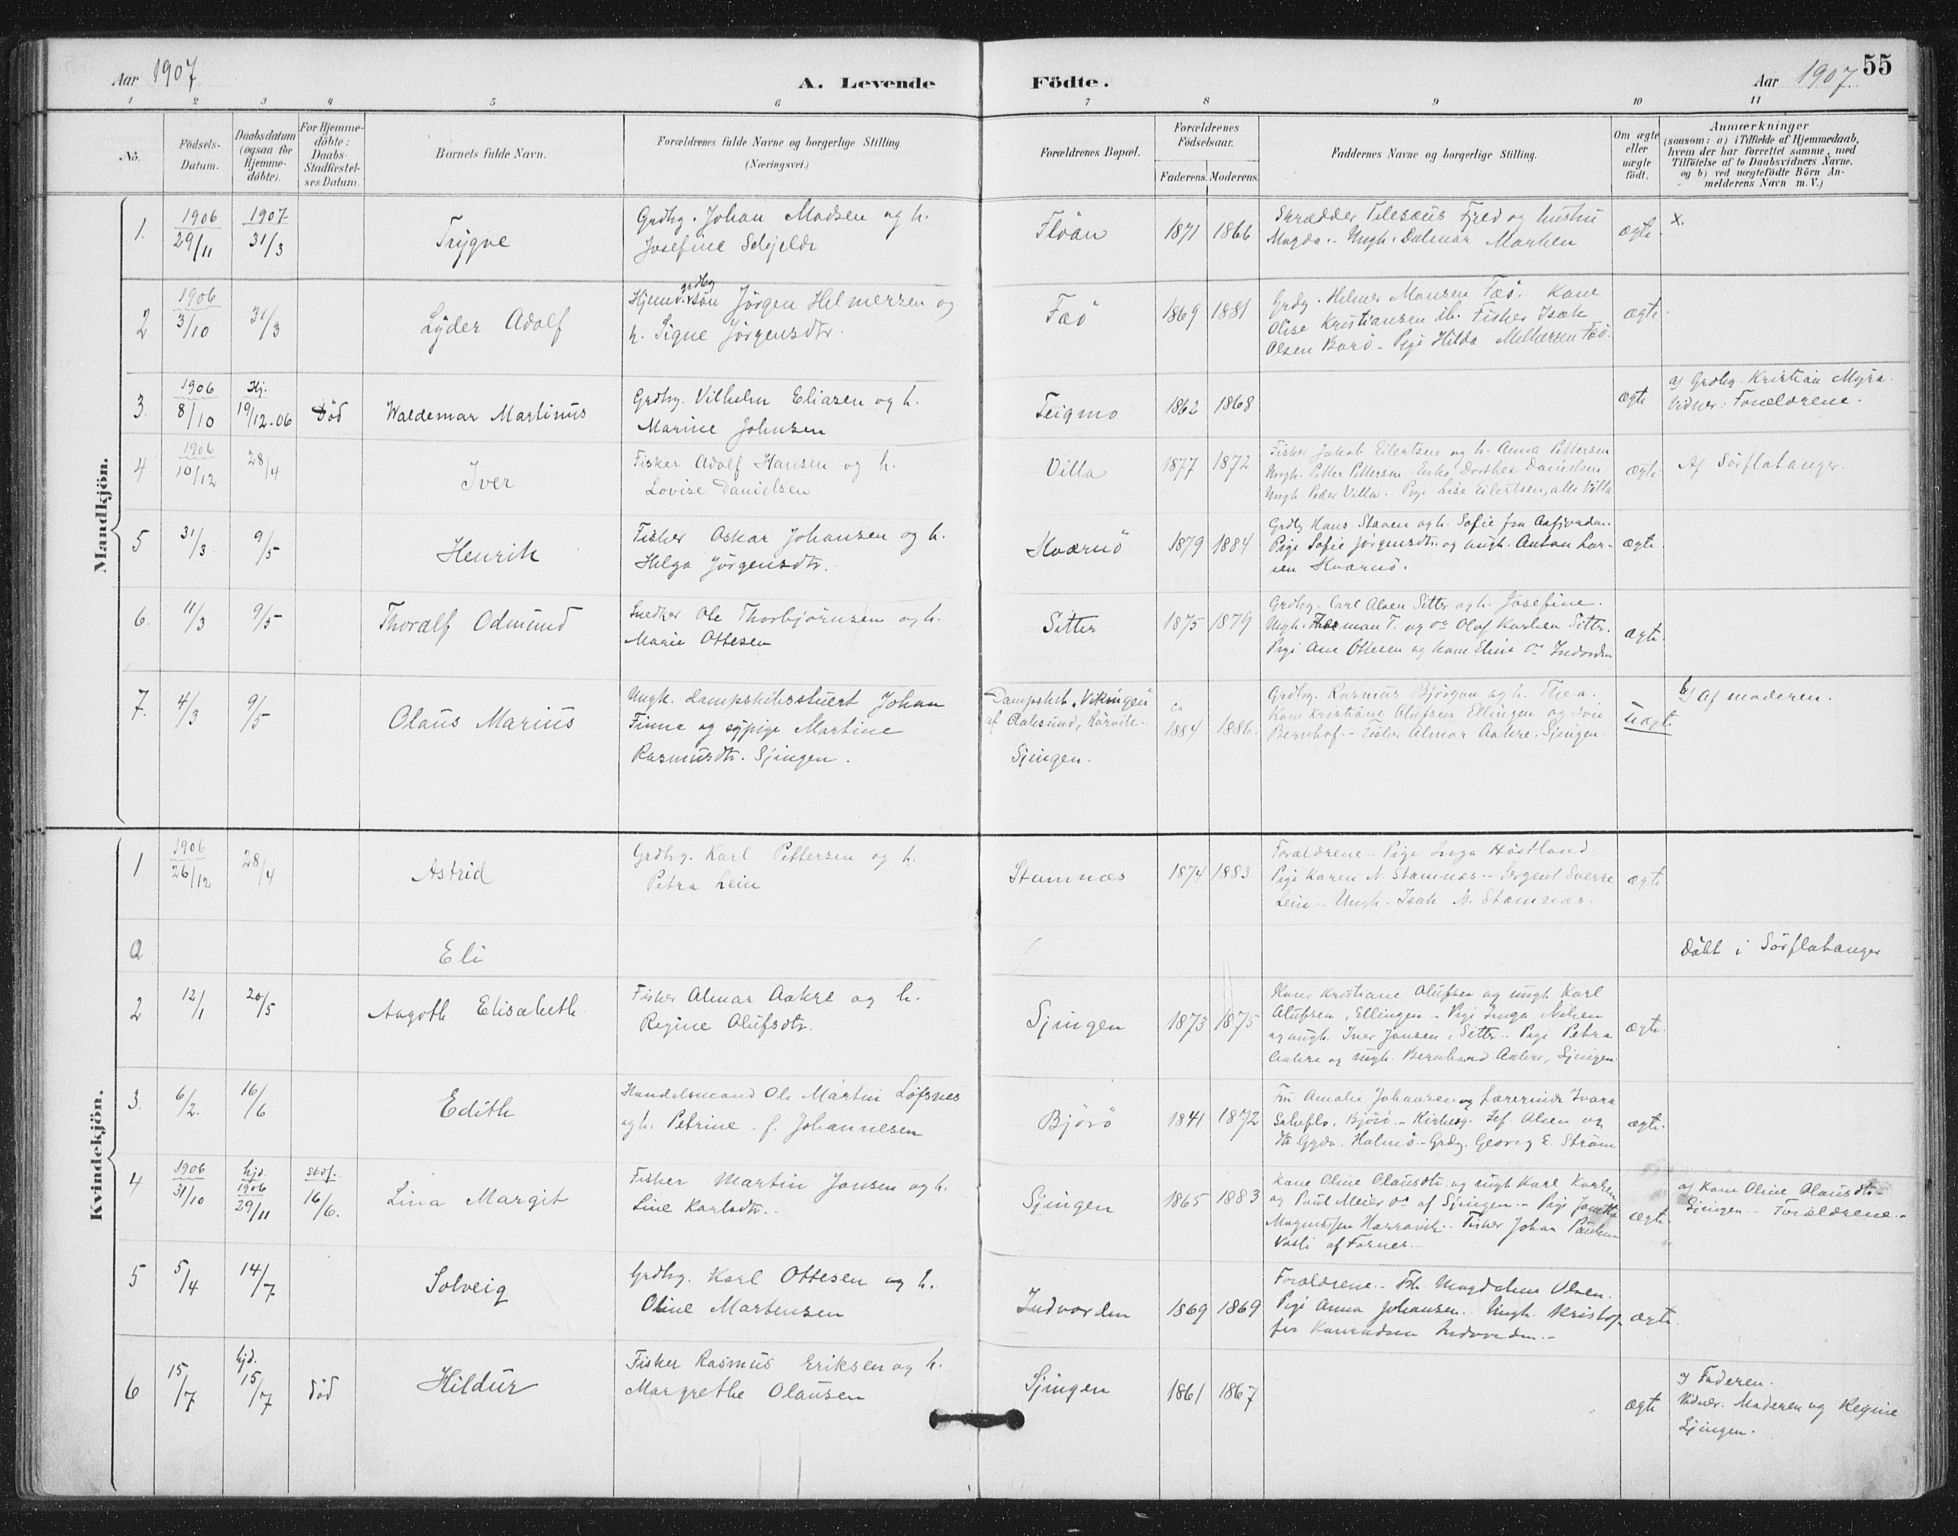 Aar 1907 A. Levende Födte. Aar 1907. 55
1 2 3 4 5 6 7 8 9 10 11
No. Födsels-Datum. Daabsdatum (ogsaa for Hjemme-døbte). For Hjemme-døbte: Daabs-Stadfæstel-ses Datum. Barnets fulde Navn. Forældrenes fulde Navne og borgerlige Stilling (Næringsvei.) Forældrenes Bopæl. Forældrenes Födselsaar. Faderens. Moderens. Faddernes Navne og borgerlige Stilling. Om ægte eller uægte födt. Anmærkninger
(saasom: a) i Tilfælde af Hjemmedaab,
hvem der har forrettet samme, med
Tilföielse af to Daabsvidners Navne,
og b) ved uægtefödte Börn An-
melderens Navn m. V.)
Mandkjön.
1. 1906 29/11 1907 31/3 Trygve Grdbg. Johan Madsen og h.
Josefine Schjeldr Flöan 1871 1866 Skrædder Tilesæus Fjed og hustru
Magda. Ungk. Dalmar Marken ægte. x.
2 1906 3/10 31/3 Lyder Adolf Hjemv. søn grdbg Jörgen Helmersen og
h. Signe Jörgensdtr. Faö 1869 1881 Grdg. Helmer Monsen Faö. Kone
Olise Kristiansen ib. Fisker Isak
Olsen Borö - Pige Hilda Melhersen Faö. ægte.
3. 1906 8/10 Hj. 19/12-06 Död Waldemar Martinus Grdbg. Vilhelm Eliasen og h.
Marine Johnsen Teigmo 1862 1868 ægte a) Grdbg. Kristian Myra.
Vidner: Forældrene.
4 1906 10/12 28/4 Iver Fisker Adolf Hansen og h.
Lovise Danielsen Villa 1877 1872 Fisker Jakob Eilertsen og h. Anna Pettersen
Ungk. Petter Pettersen - Enke Dorthea Danielsen
Ungk. Peder Villa - Pige Lise Eilertsen, alle Villa ægte. Af Sörflatanger.
5 31/3. 9/5 Henrik Fisker Oskar Johansen og h.
Helga Jörgensdtr. Kværnö 1879 1884 Grdbg Hans Staven og h. Sofie fra
Pige Sofie Jörgensdtr. og ungk. Anton Lar-
sen Kværnö. ægte.
6. 11/3 9/5 Thoralf Odmund Snedker Ole Thorbjörnsen og h.
Marie Ottesen Sitter 1875 1879 Grdbg. Carl Olsen Sitter og h. Josefine.
Ungk. Torman T. og do Olaf Karlsen Sittr.
Pige Ane Ottesen og kone Eline do Indvorden ægte.
7. 4/3 9/5 Olaus Marius Ungk. Dampskibsstuert Johan
Finne og sypige Martine
Rasmusdtr. Sjingen. Dampskib "Vikingen"
af Aalesund,
Sjingen. 1884 1886. Grdbg. Rasmus Björgan og h. Thea.
Kone Kristiane Olufsen Ellingen og
Bernhof - Fisker Almar Aakre. Sjingen. Uægte. b) Af moderen.
Kvindekjön.
1 1906 26/12 28/4 Astrid Grdbg. Karl Pettersen og h.
Petra Lein Stamnæs 1874 1883. Forældrene - Pige Inga Höstland
Pige Karen N. Stamnæs - Sergent Sverre
Lein - Ungk. Isak N. Stamnæs. ægte
a Eli Döbt i Sörflatanger
2 12/1 20/5 Aagoth Elisabeth Fisker Almar Aakre og h.
Regine Olufsdtr. Sjingen 1873 1875 Kone Kristiane Olufsen og ungk Karl
Olufsen, Ellingen - Pige Inga Nilsen
og ungk. Iver Jonsen, Sitter - Pige Petra
Aakre og ungk. Bernhard Aakre, Sjingen. ægte.
3. 6/2. 16/6 Edith Handelsmand Ole Martin Løfsnes
og h. Petrine f. Johannesen Björö 1841 1872 Fru Amalie Johansen og Lærerinde Ivara
Björö - Kirkesg. Jef. Olsen og
Gyda, Holmö - Grdg. Georg E. Ström ægte.
4 1906 31/10 hjd. 1906 29/11 stdf. 16/6. Lina Margit Fisker Martin Jonsen og h.
Line Karlsdtr. Sjingen 1865 1883 Kone Oline Olausdtr. og ungk Karl Karlsen
og Paul Meier do af Sjingen - Pige
Magnussen Harravik - Fisker Johan Paulsen
Vasli af Fosnes. ægte a) Kone Oline Olausdtr.
Sjingen - Forældrene.
5 5/4 14/7 Solveig Grdbg. Karl Ottesen og h.
Oline Martensen Indvorden 1869 1869 Forældrene - Frk. Magdalene Olsen.
Pige Anna Johansen. Ungk. Kristof-
fer Konradsen Indvorden. ægte.
6 15/7 hjd. 15/7 död Hildur Fisker Rasmus Eriksen og h.
Margrethe Olausen Sjingen 1861 1867 ægte a) Faderen.
Vidner. Moderen og Regine
Sjingen.